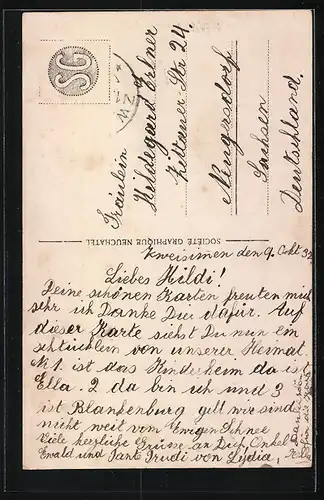 SG
ZW
Fräulein
Hildegard Exner
Zittauer Str 24.
Neugersdorf
Sachsen
Deutschland.
SOCIÉTÉ GRAPHIQUE NEUCHATEL
Zweisimen den 9. Okt 32
Liebes Hildi!
Deine schönen Karten freuten mich
sehr ich Danke Dir dafür. Auf
dieser Karte siehst Du nun ein
schtücklein von unserer Heimat.
N 1. ist das Kinderheim da is
Ella. 2 da bin ich und 3
ist Blankenburg gell wir sind
nicht weit vom Ewigen Schnee
Viele herzliche Grüsse an Dich, Onkel
Ewald und Tante Trudi von Lydia,